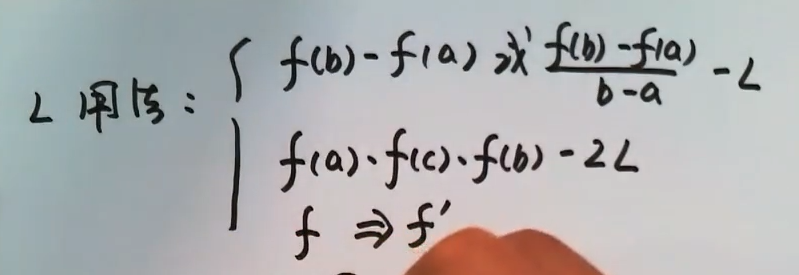 L 用法: { f(b)-f(a) 或 \frac{f(b)-f(a)}{b-a} - L
f(a)、f(c)、f(b) - 2L
f ⇒ f'